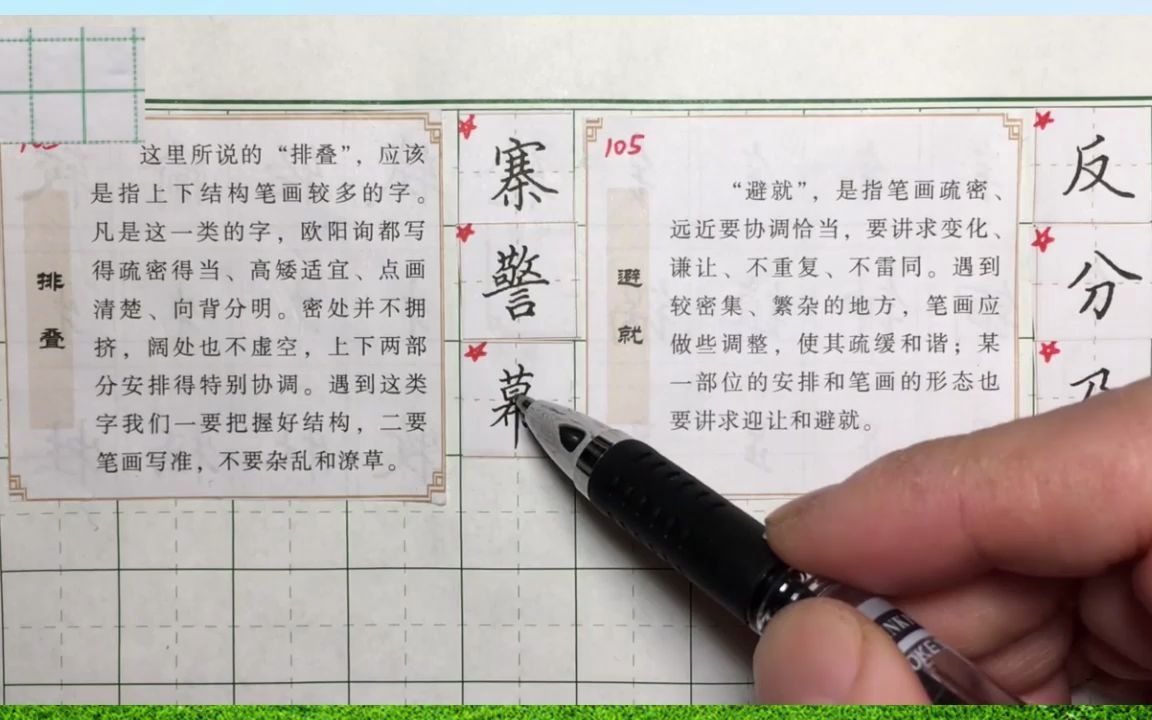 排叠
这里所说的“排叠”，应该
是指上下结构笔画较多的字。
凡是这一类的字，欧阳询都写
得疏密得当、高矮适宜、点画
清楚、向背分明。密处并不拥
挤，阔处也不虚空，上下两部
分安排得特别协调。遇到这类
字我们一要把握好结构，二要
笔画写准，不要杂乱和潦草。
寨
警
幕
105
避就
“避就”，是指笔画疏密、
远近要协调恰当，要讲求变化、
谦让、不重复、不雷同。遇到
较密集、繁杂的地方，笔画应
做些调整，使其疏缓和谐；某
一部位的安排和笔画的形态也
要讲求迎让和避就。
反
分